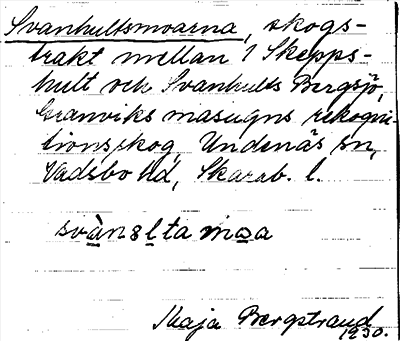 Svanhultsmoarna, skogs-
trakt mellan 1 Skepps-
hult och Svanhults Bergsjö,
Granviks masugns rekogni-
tionsskog, Undenäs sn,
Vadsbo hd, Skarab. l.
svànsltamoa
Maja Bergstrand
1930.